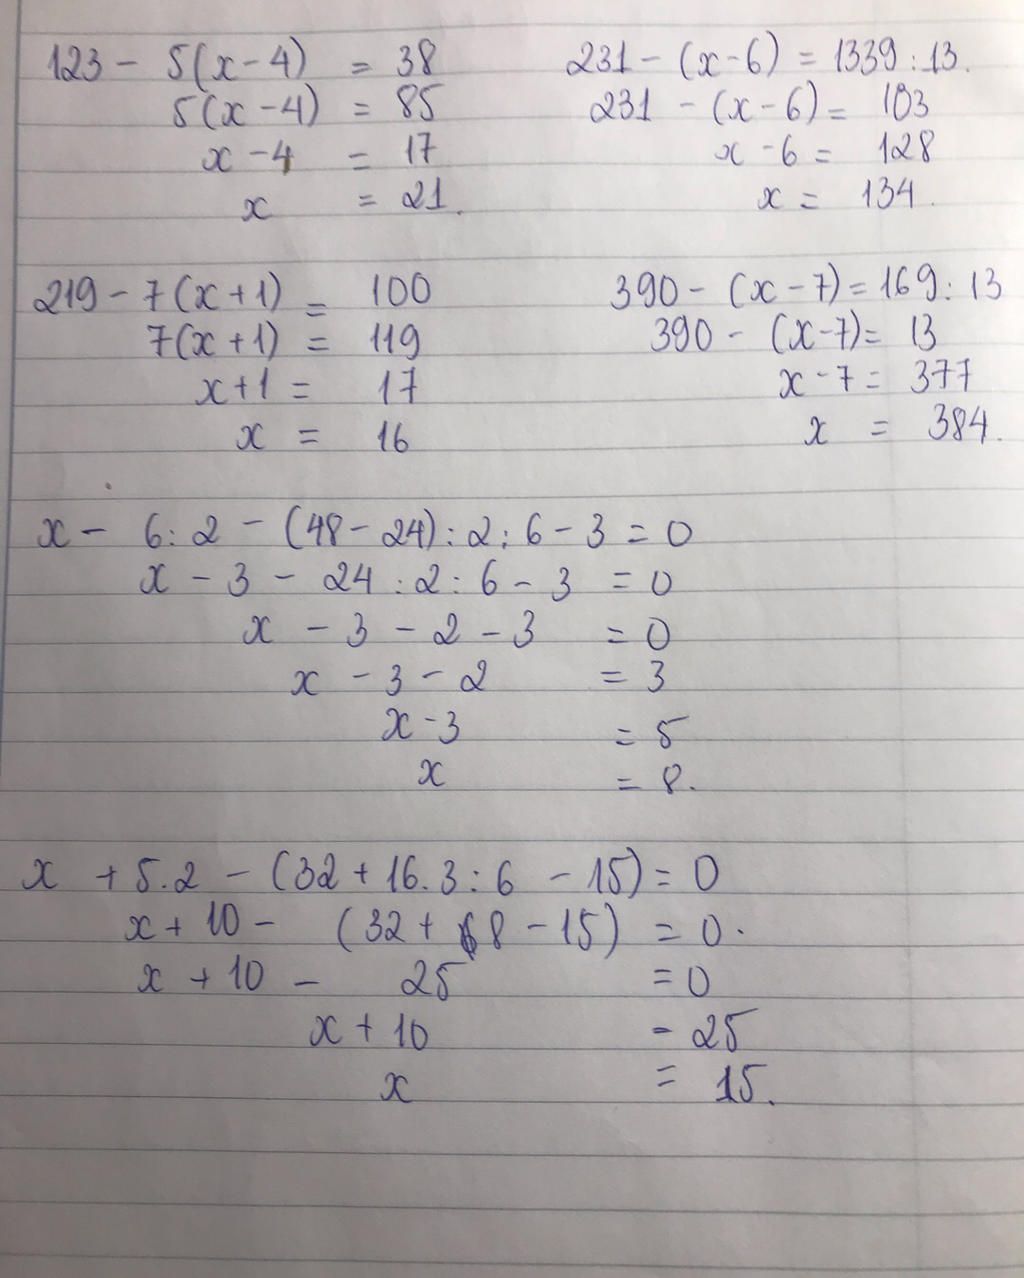 123 - 5(x-4) = 38
5(x-4) = 85
x-4 = 17
x = 21.
231 - (x-6) = 1339 : 13.
231 - (x-6) = 103
x-6 = 128
x = 134.
219 - 7(x+1) = 100
7(x+1) = 119
x+1 = 17
x = 16
390 - (x-7) = 169 : 13
390 - (x-7) = 13
x-7 = 377
x = 384.
x - 6 : 2 - (48-24) : 2 : 6 - 3 = 0
x - 3 - 24 : 2 : 6 - 3 = 0
x - 3 - 2 - 3 = 0
x - 3 - 2 = 3
x-3 = 5
x = 8.
x + 5.2 - (32 + 16.3 : 6 - 15) = 0
x + 10 - (32 + 8 - 15) = 0.
x + 10 - 25 = 0
x + 10 = 25
x = 15.